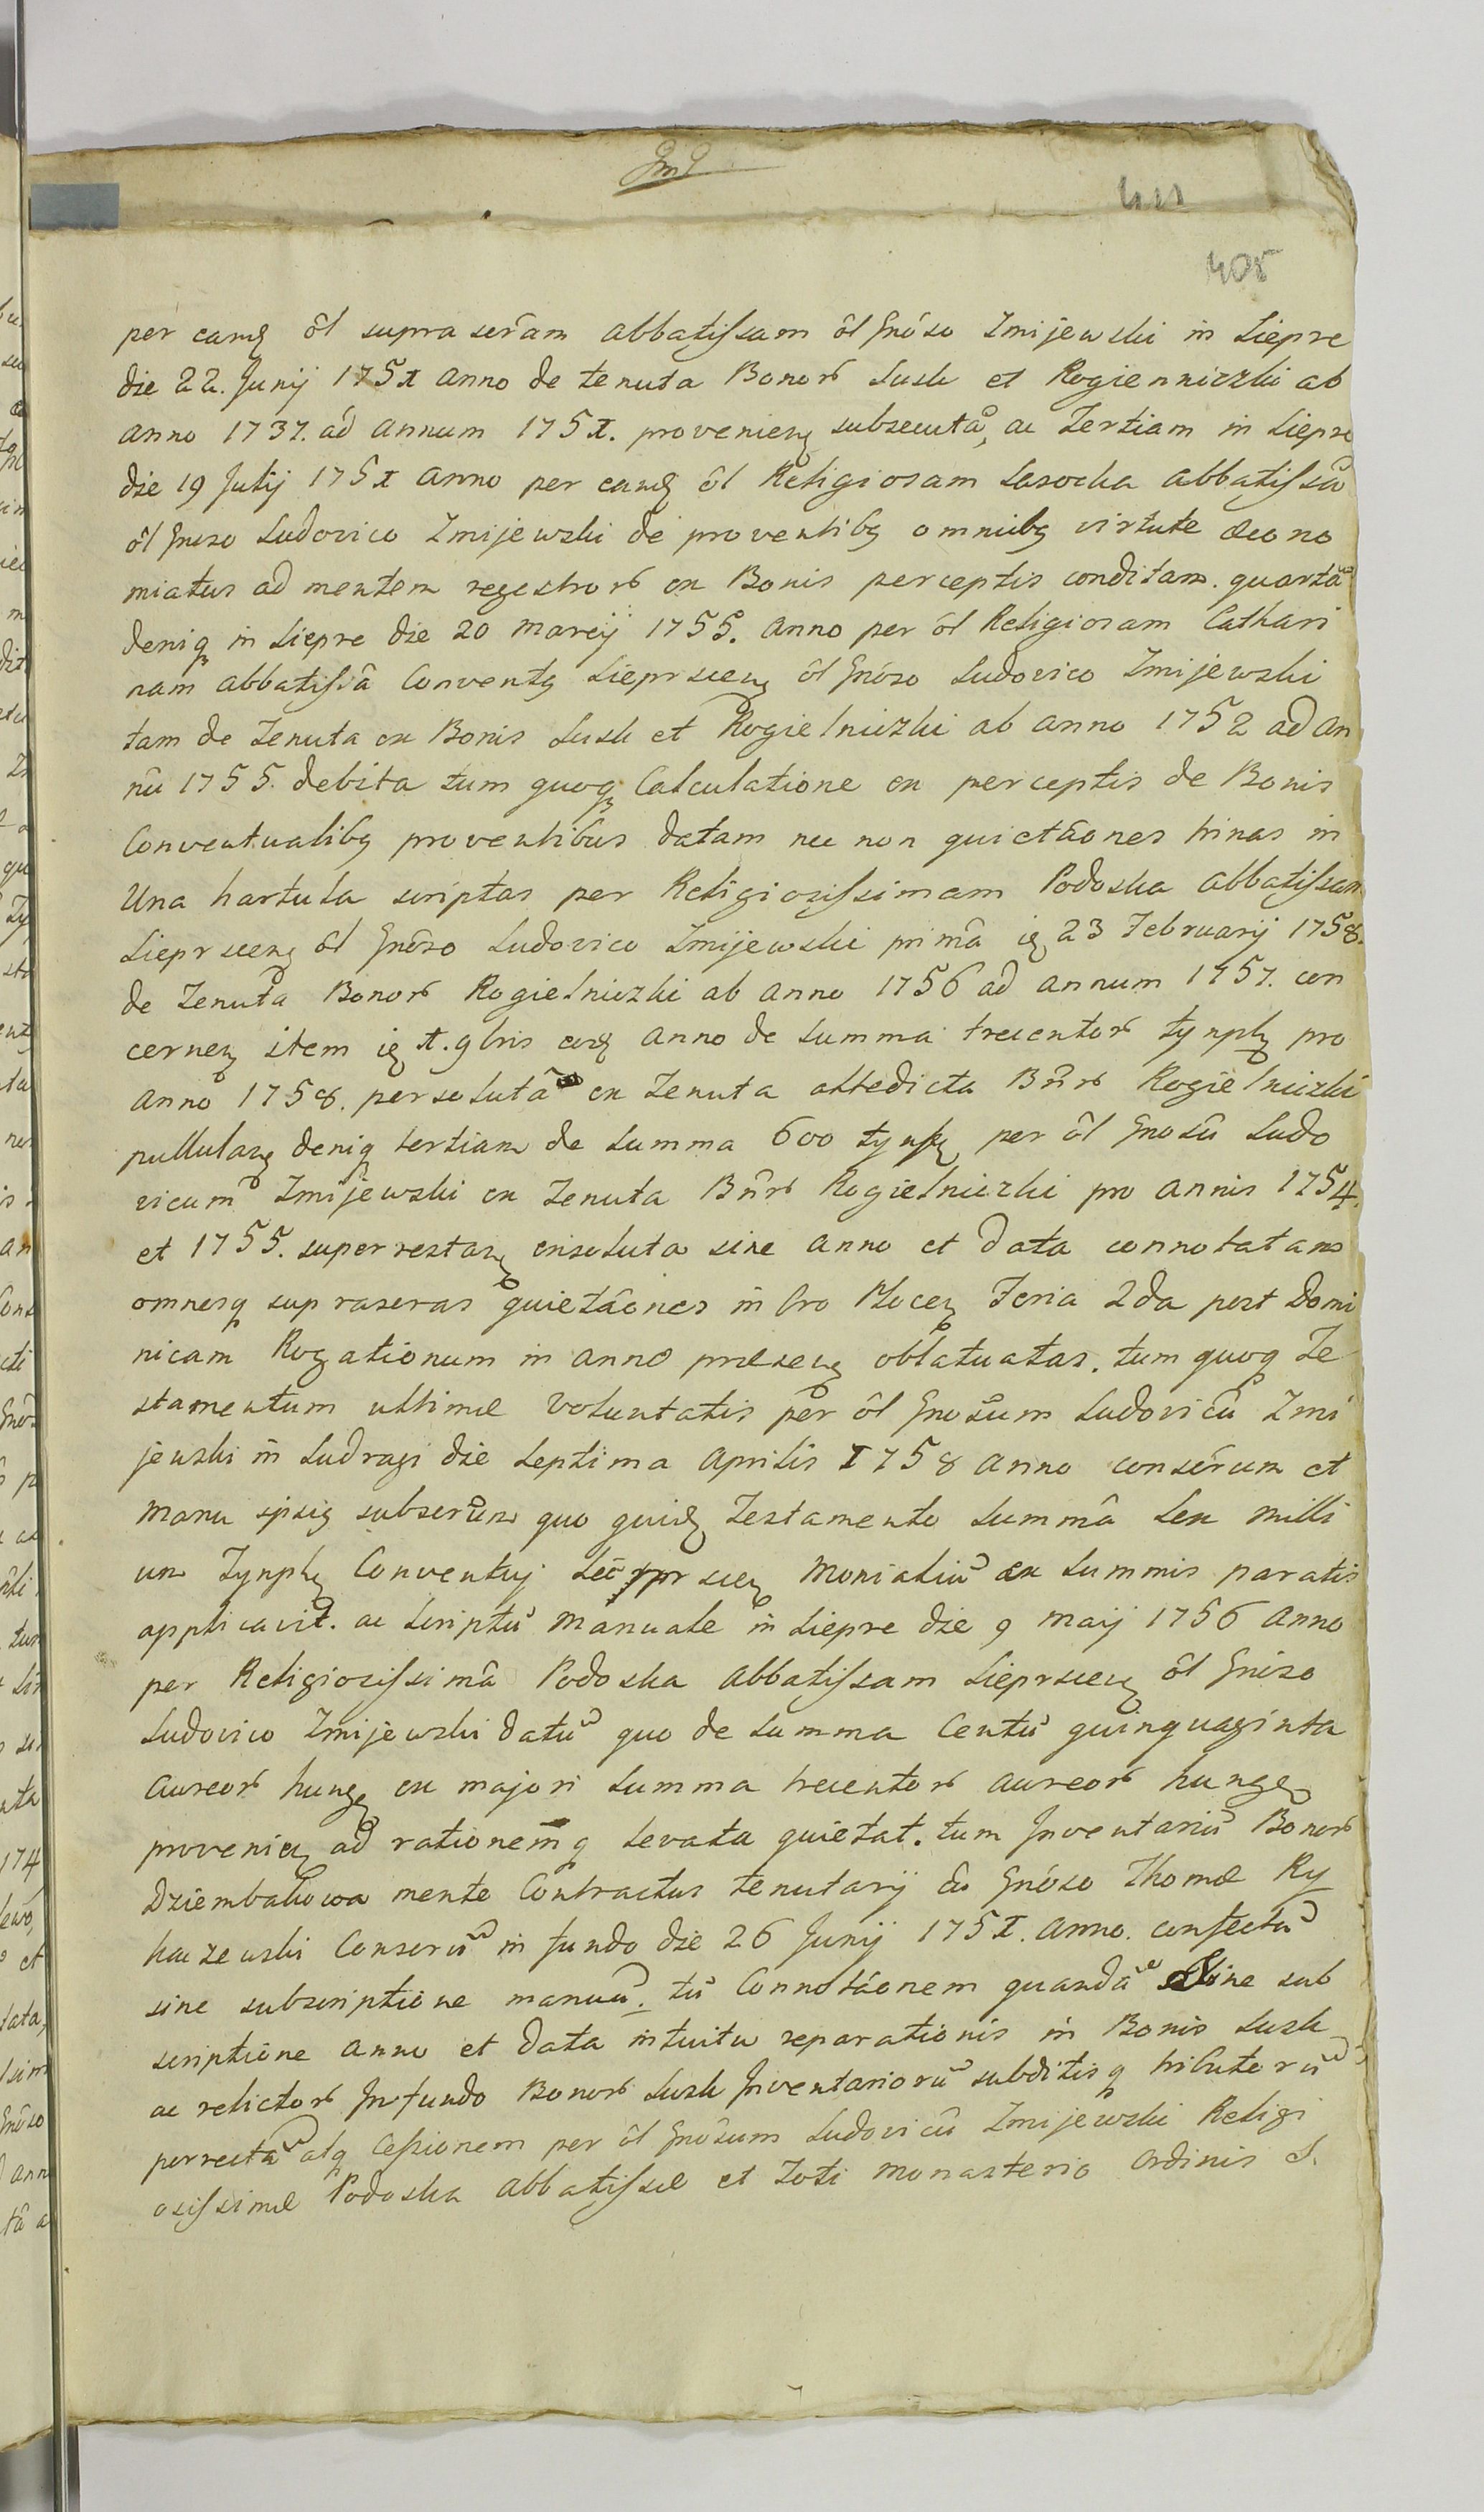 405
per eamq ol supra scram abbatissam ol Gnoso Zmijewski in Siepre
die 22. Junij 1751 anno de tenuta Bonor Susk et Rogienniczki ab
anno 1737. ad annum 1751. provenienq subsecuta, ac Tertiam in Siepre
die 19 Julij 1751 anno per eamq ol Religiosam Lasocka abbatissa
ol Gnoso Ludovico Zmijewski de proventibq omnibq virtute oecono
miatus ad mentem regestror ex Bonis perceptis conditam. quarta
deniq in Siepre die 20 Marcij 1755. anno per ol Religiosam Cathari
nam abbatissâ Conventq Sieprscenq ôl Gnôso Ludovico Zmijewski
tam de Tenuta ex Bonis Susk et Rogielniczki ab anno 1752 ad an
nû 1755. debita tum quoq Calculatione ex perceptis de Bonis
Conventualibq proventibus datam nec non quietâones trinas in
Una hartula scriptas per Religiosissimam Podoska abbatissam
Sieprscenq ôl Gnôso Ludovico Zmijewski primâ 23 Februarij 1758.
de Tenuta Bonor Rogielniczki ab anno 1756 ad annum 1757. con
cernenq item 1. 9bris eodq anno de summa trecentor tynphq pro
anno 1758. persolutâ ex Tenuta attedicta Bnor Rogielniczki
pullulanq deniq tertiam de summa 600 tynphq per ôl Gnosû Ludo
vicum Zmijewski ex Tenuta Bnor Rogielniczki pro annis 1754.
et 1755. superrestanq exsoluta sine anno et data connotatam
omnesq suprascras quietâones in Cro Plocenq Feria 2da post Domi
nicam Rogationum in anno præsenq oblatuatas. tum quoq Te
stamentum ultimæ voluntatis per ôl Gnosum Ludovicû Zmi
jewski in Ludragi die Septima Aprilis 1758 anno conscrum et
manu ipsiq subscrum quo quidq Testamento summâ sex milli
um Tynphq Conventuj Sieprscenq Monialiû ex summis paratis
applicavit. ac scriptû manuale in Siepre die 9 Maij 1756 anno
per Religiosissimâ Podoska abbatissam Sieprscenq ôl Gnôso
Ludovico Zmijewski datû quo de summa Centû quinquaginta
aureor hungq ex majori summa trecentor aureor hungq
provenienq ad rationemq levata quietat. tum Inventariû Bonor
Dziembakowa mente Contractus tenutarij Gnôso Thomæ Ry
kaczewski Conscrû in fundo die 26 Junij 1751. anno. confectû
sine subscriptione manuû. tû Connotâonem quandâ sine sub
scriptione anno et data intuitu reparationis in Bonis Susk
ac relictor In fundo Bonor Susk Inventariorû subditisq tributorû
porrectâ atq Cessionem per ôl Gnôsum Ludovicû Zmijewski Religi
osissimæ Podoska Abbatissæ et Toti Monasterio Ordinis S.